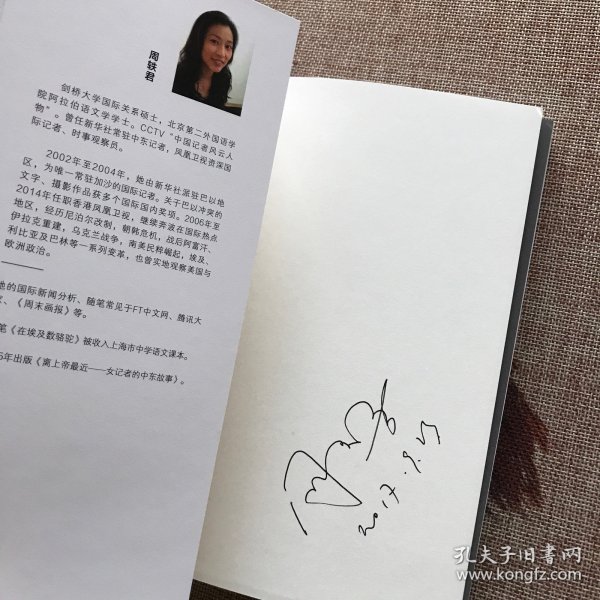 周轶君
剑桥大学国际关系硕士，北京第二外国语学
院阿拉伯语文学学士。CCTV“中国记者风云人
物”。曾任新华社常驻中东记者，凤凰卫视资深国
际记者、时事观察员。
2002年至2004年，她由新华社派驻巴以地
区，为唯一常驻加沙的国际记者。关于巴以冲突的
文字、摄影作品获多个国际国内奖项。2006年至
2014年任职香港凤凰卫视，继续奔波在国际热点
地区，经历尼泊尔改制，朝韩危机，战后阿富汗、
伊拉克重建，乌克兰战争，南美民粹崛起，埃及、
利比亚及巴林等一系列变革，也曾实地观察美国与
欧洲政治。
她的国际新闻分析、随笔常见于FT中文网、腾讯大
家、《周末画报》等。
笔《在埃及数骆驼》被收入上海市中学语文课本。
5年出版《离上帝最近——女记者的中东故事》。
周轶君
2017.9.23
孔夫子旧书网
www.kongfz.com